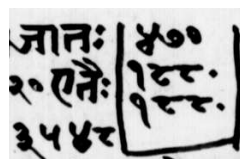 जातः ४७०
२० एतैः १८८.
३५४८ १८८.